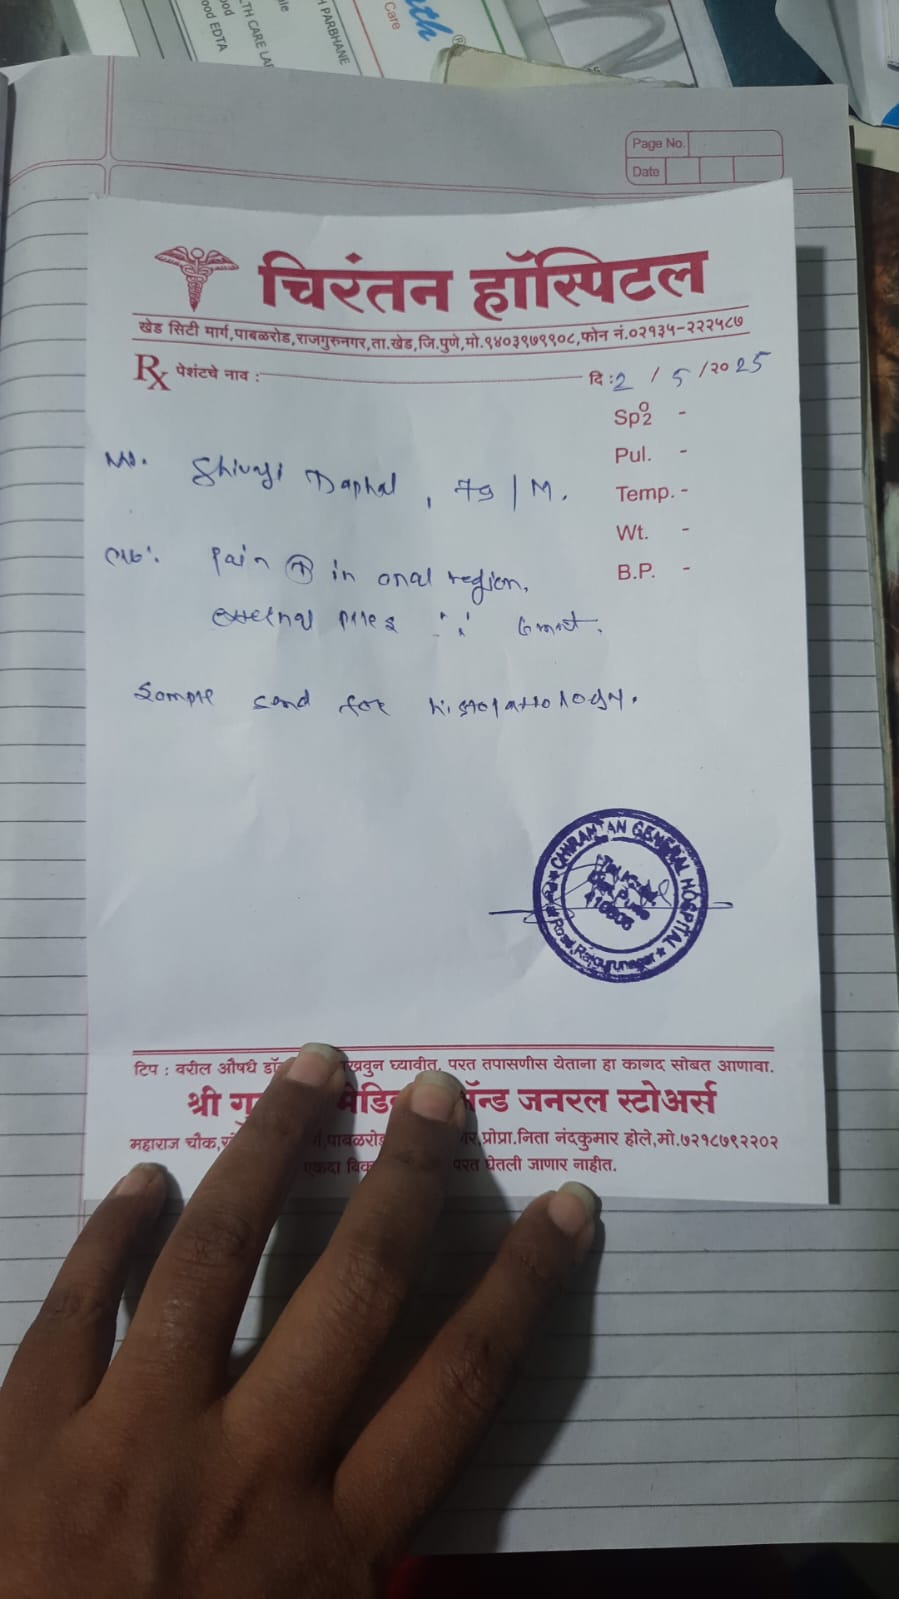 ole
ood
ood EDTA
LTH CARE LA
H PARBHANE
Care
th
®
Page No.
Date
चिरंतन हॉस्पिटल
खेड सिटी मार्ग,पाबळरोड,राजगुरुनगर,ता.खेड,जि.पुणे,मो.९४०३९७९९०८,फोन नं.०२१३५-२२२५८७
Rx पेशंटचे नाव : दि :2 / 5 /२० 25
Sp2 -
Pul. -
Temp. -
Wt. -
B.P. -
Shivaji Daphal, /M.
Pain ↑ in anal region,
external piles
Sample send for histopathology.
CHIRANTAN GENERAL HOSPITAL
Road, Rajgurunagar
Dist. Pune
टिप : वरील औषधे डॉ खवुन घ्यावीत, परत तपासणीस येताना हा कागद सोबत आणावा.
श्री गु मेडि ॲन्ड जनरल स्टोअर्स
महाराज चौक, पाबळरो र,प्रोप्रा.निता नंदकुमार होले,मो.७२१८७९२२०२
एकदा विक परत घेतली जाणार नाहीत.